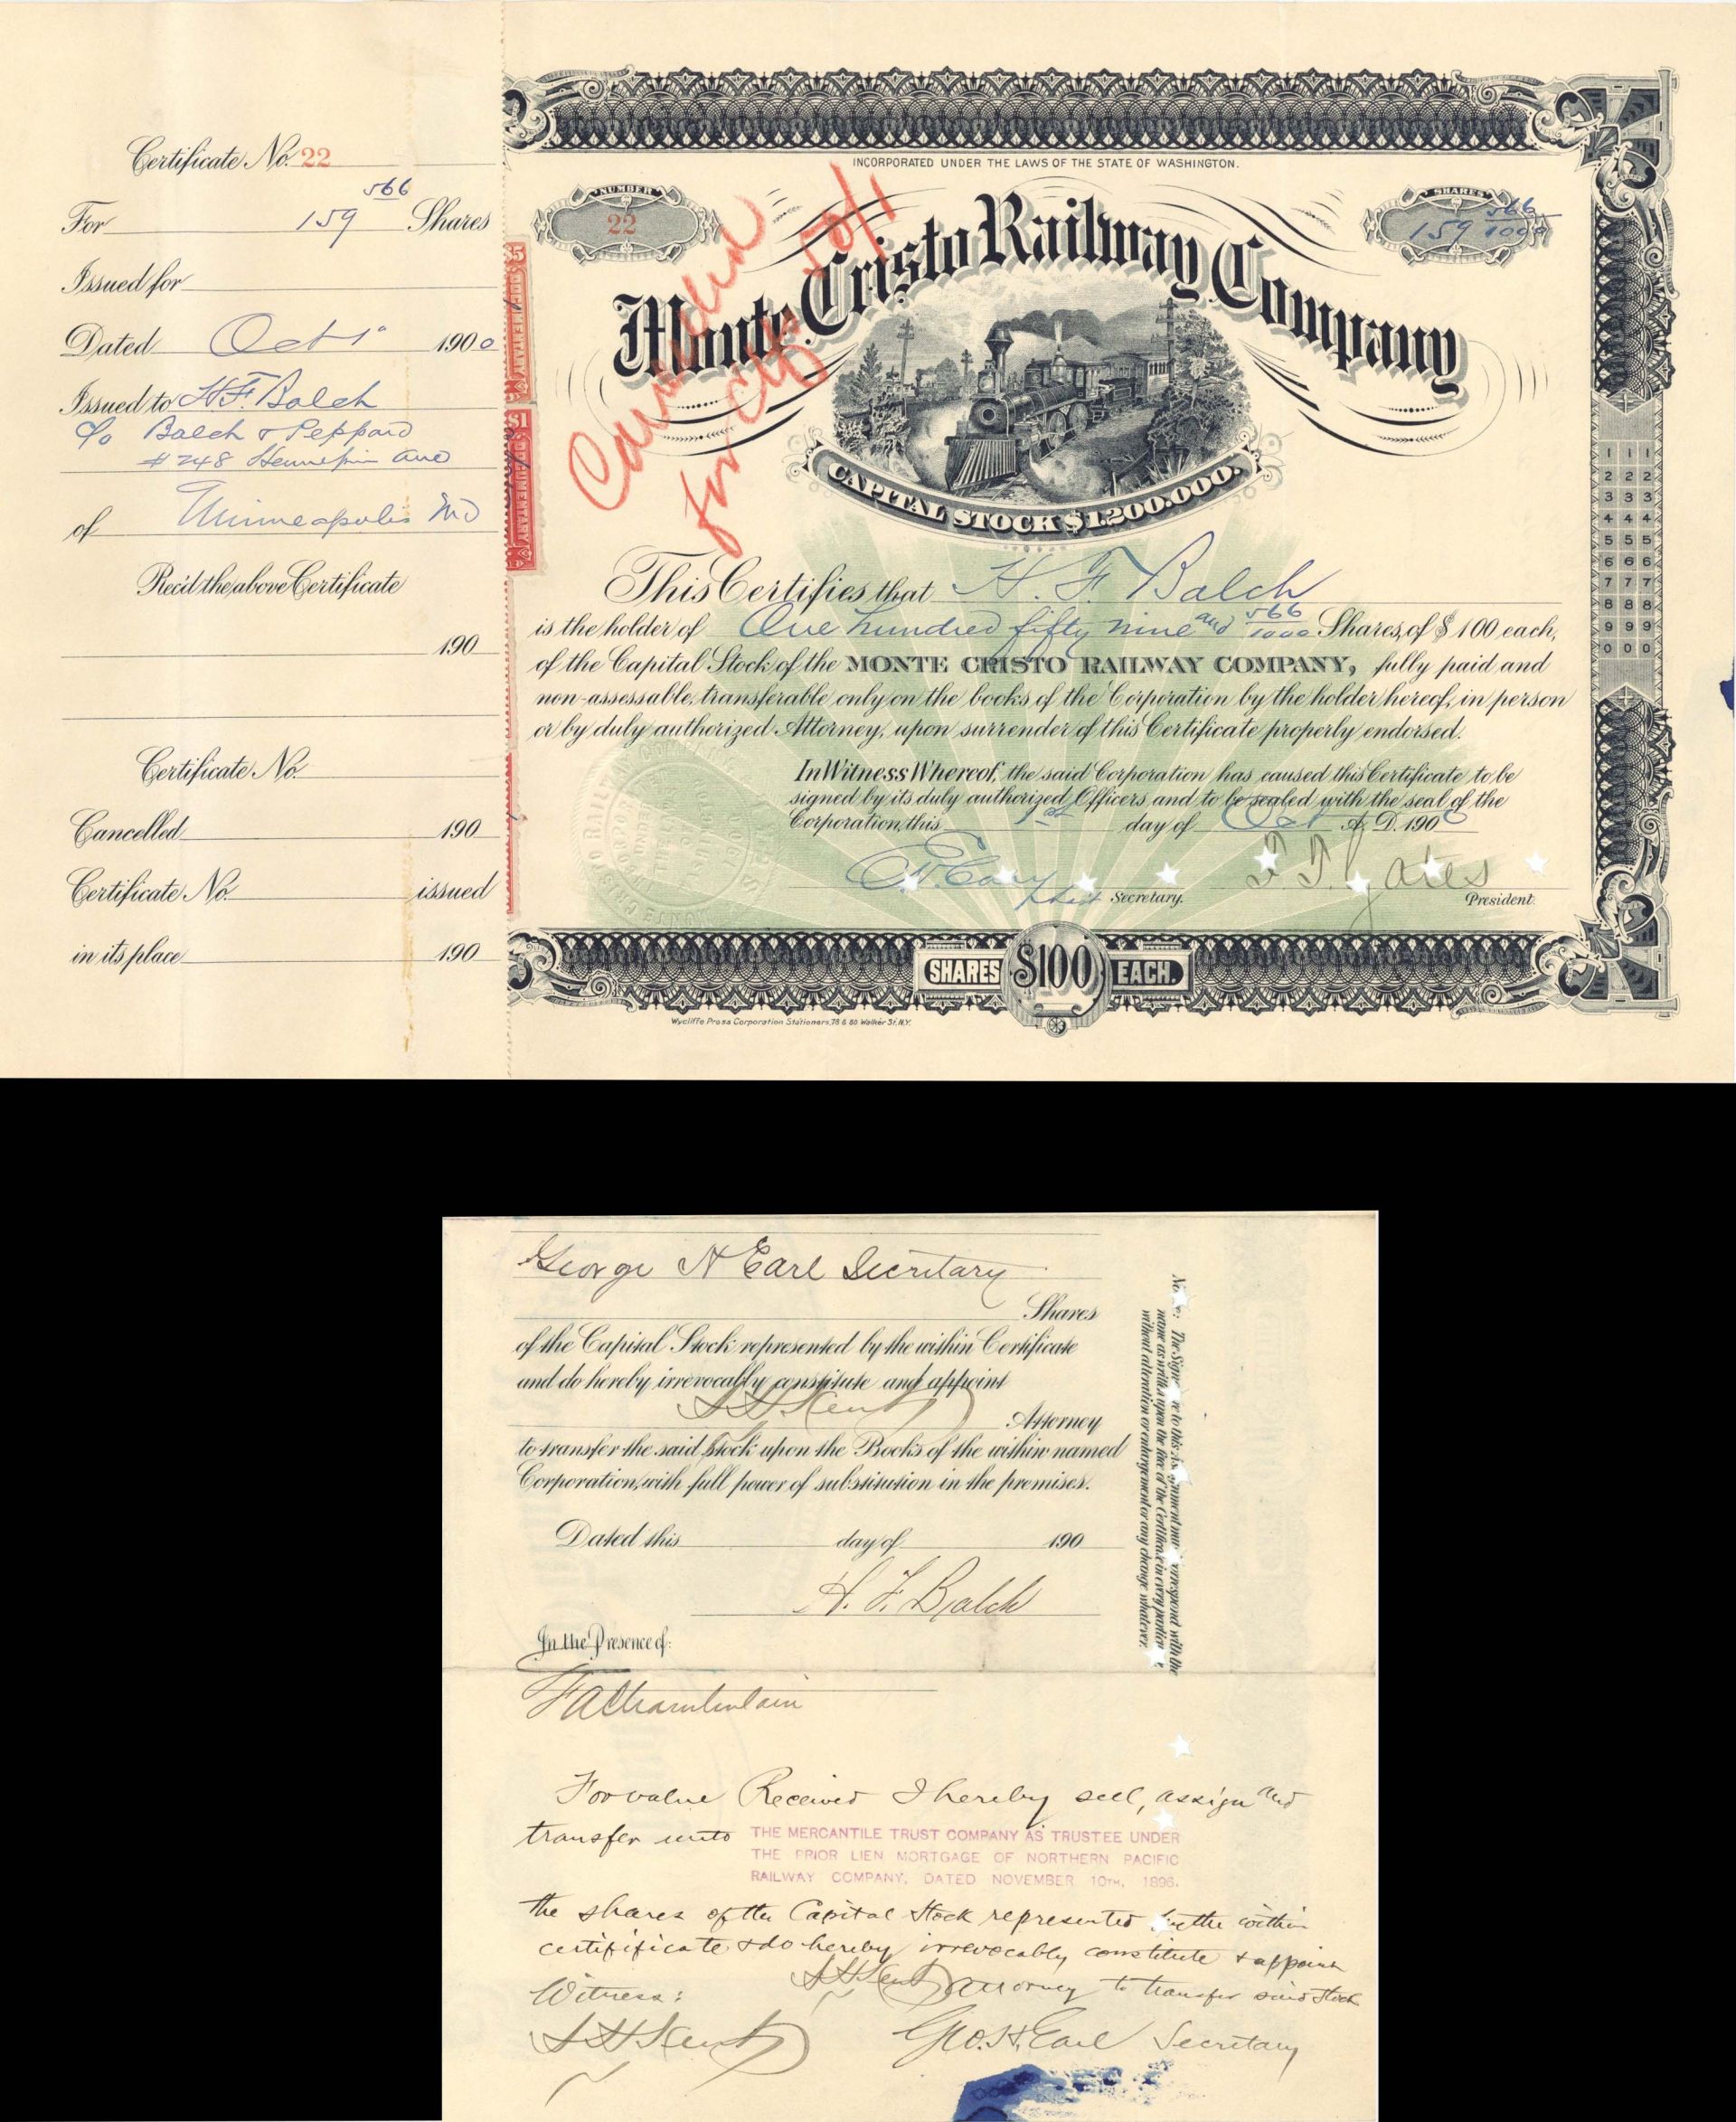 Certificate No. 22
For 159 566 Shares
Issued for
Dated Oct 1° 1900
Issued to H.F. Balch
c/o Balch & Peppard
#248 Hennepin Ave
of Minneapolis
Rec'd the above Certificate
190
Certificate No.
Cancelled 190
Certificate No. issued
in its place 190
$5 DOCUMENTARY
$1 DOCUMENTARY
INCORPORATED UNDER THE LAWS OF THE STATE OF WASHINGTON.
NUMBER
22
SHARES
159 566/1000
Cancelled
for
Monte Cristo Railway Company
CAPITAL STOCK $1.200.000.
This Certifies that H. F. Balch
is the holder of One hundred fifty nine and 566/1000 Shares, of $100 each,
of the Capital Stock of the MONTE CRISTO RAILWAY COMPANY, fully paid and
non-assessable, transferable only on the books of the Corporation by the holder hereof, in person
or by duly authorized Attorney, upon surrender of this Certificate properly endorsed.
In Witness Whereof, the said Corporation has caused this Certificate to be
signed by its duly authorized Officers and to be sealed with the seal of the
Corporation, this 1st day of Oct A.D. 1900
Secretary.
President.
1 1 1
2 2 2
3 3 3
4 4 4
5 5 5
6 6 6
7 7 7
8 8 8
9 9 9
0 0 0
SHARES $100 EACH.
Wycliffe Press Corporation Stationers, 78 & 80 Walker St. N.Y.
George H Earl Secretary
Shares
of the Capital Stock represented by the within Certificate
and do hereby irrevocably constitute and appoint
Attorney
to transfer the said Stock upon the Books of the within named
Corporation, with full power of substitution in the premises.
Dated this day of 190
H. F. Balch
In the Presence of:
F A Chamberlain
For value Received I hereby sell, assign and
transfer unto THE MERCANTILE TRUST COMPANY AS TRUSTEE UNDER
THE PRIOR LIEN MORTGAGE OF NORTHERN PACIFIC
RAILWAY COMPANY, DATED NOVEMBER 10TH, 1896.
the shares of the Capital Stock represented by the within
certifificate & do hereby irrevocably constitute & appoint
attorney to transfer said stock
Witness:
Geo. H. Earl Secretary